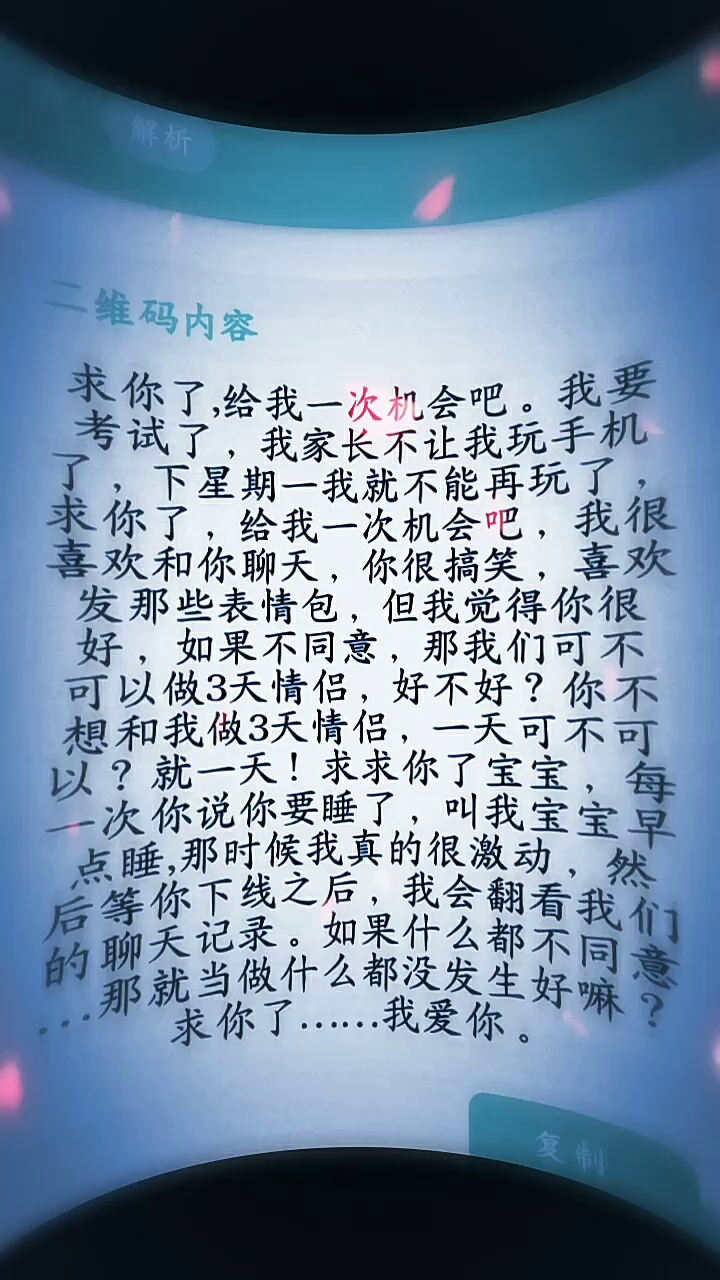 解析
二维码内容
求你了,给我一次机会吧。我要
考试了，我家长不让我玩手机
了，下星期一我就不能再玩了，
求你了，给我一次机会吧，我很
喜欢和你聊天，你很搞笑，喜欢
发那些表情包，但我觉得你很
好，如果不同意，那我们可不
可以做3天情侣，好不好？你不
想和我做3天情侣，一天可不可
以？就一天！求求你了宝宝，每
一次你说你要睡了，叫我宝宝早
点睡,那时候我真的很激动，然
后等你下线之后，我会翻看我们
的聊天记录。如果什么都不同意
...那就当做什么都没发生好嘛？
求你了......我爱你。
复制